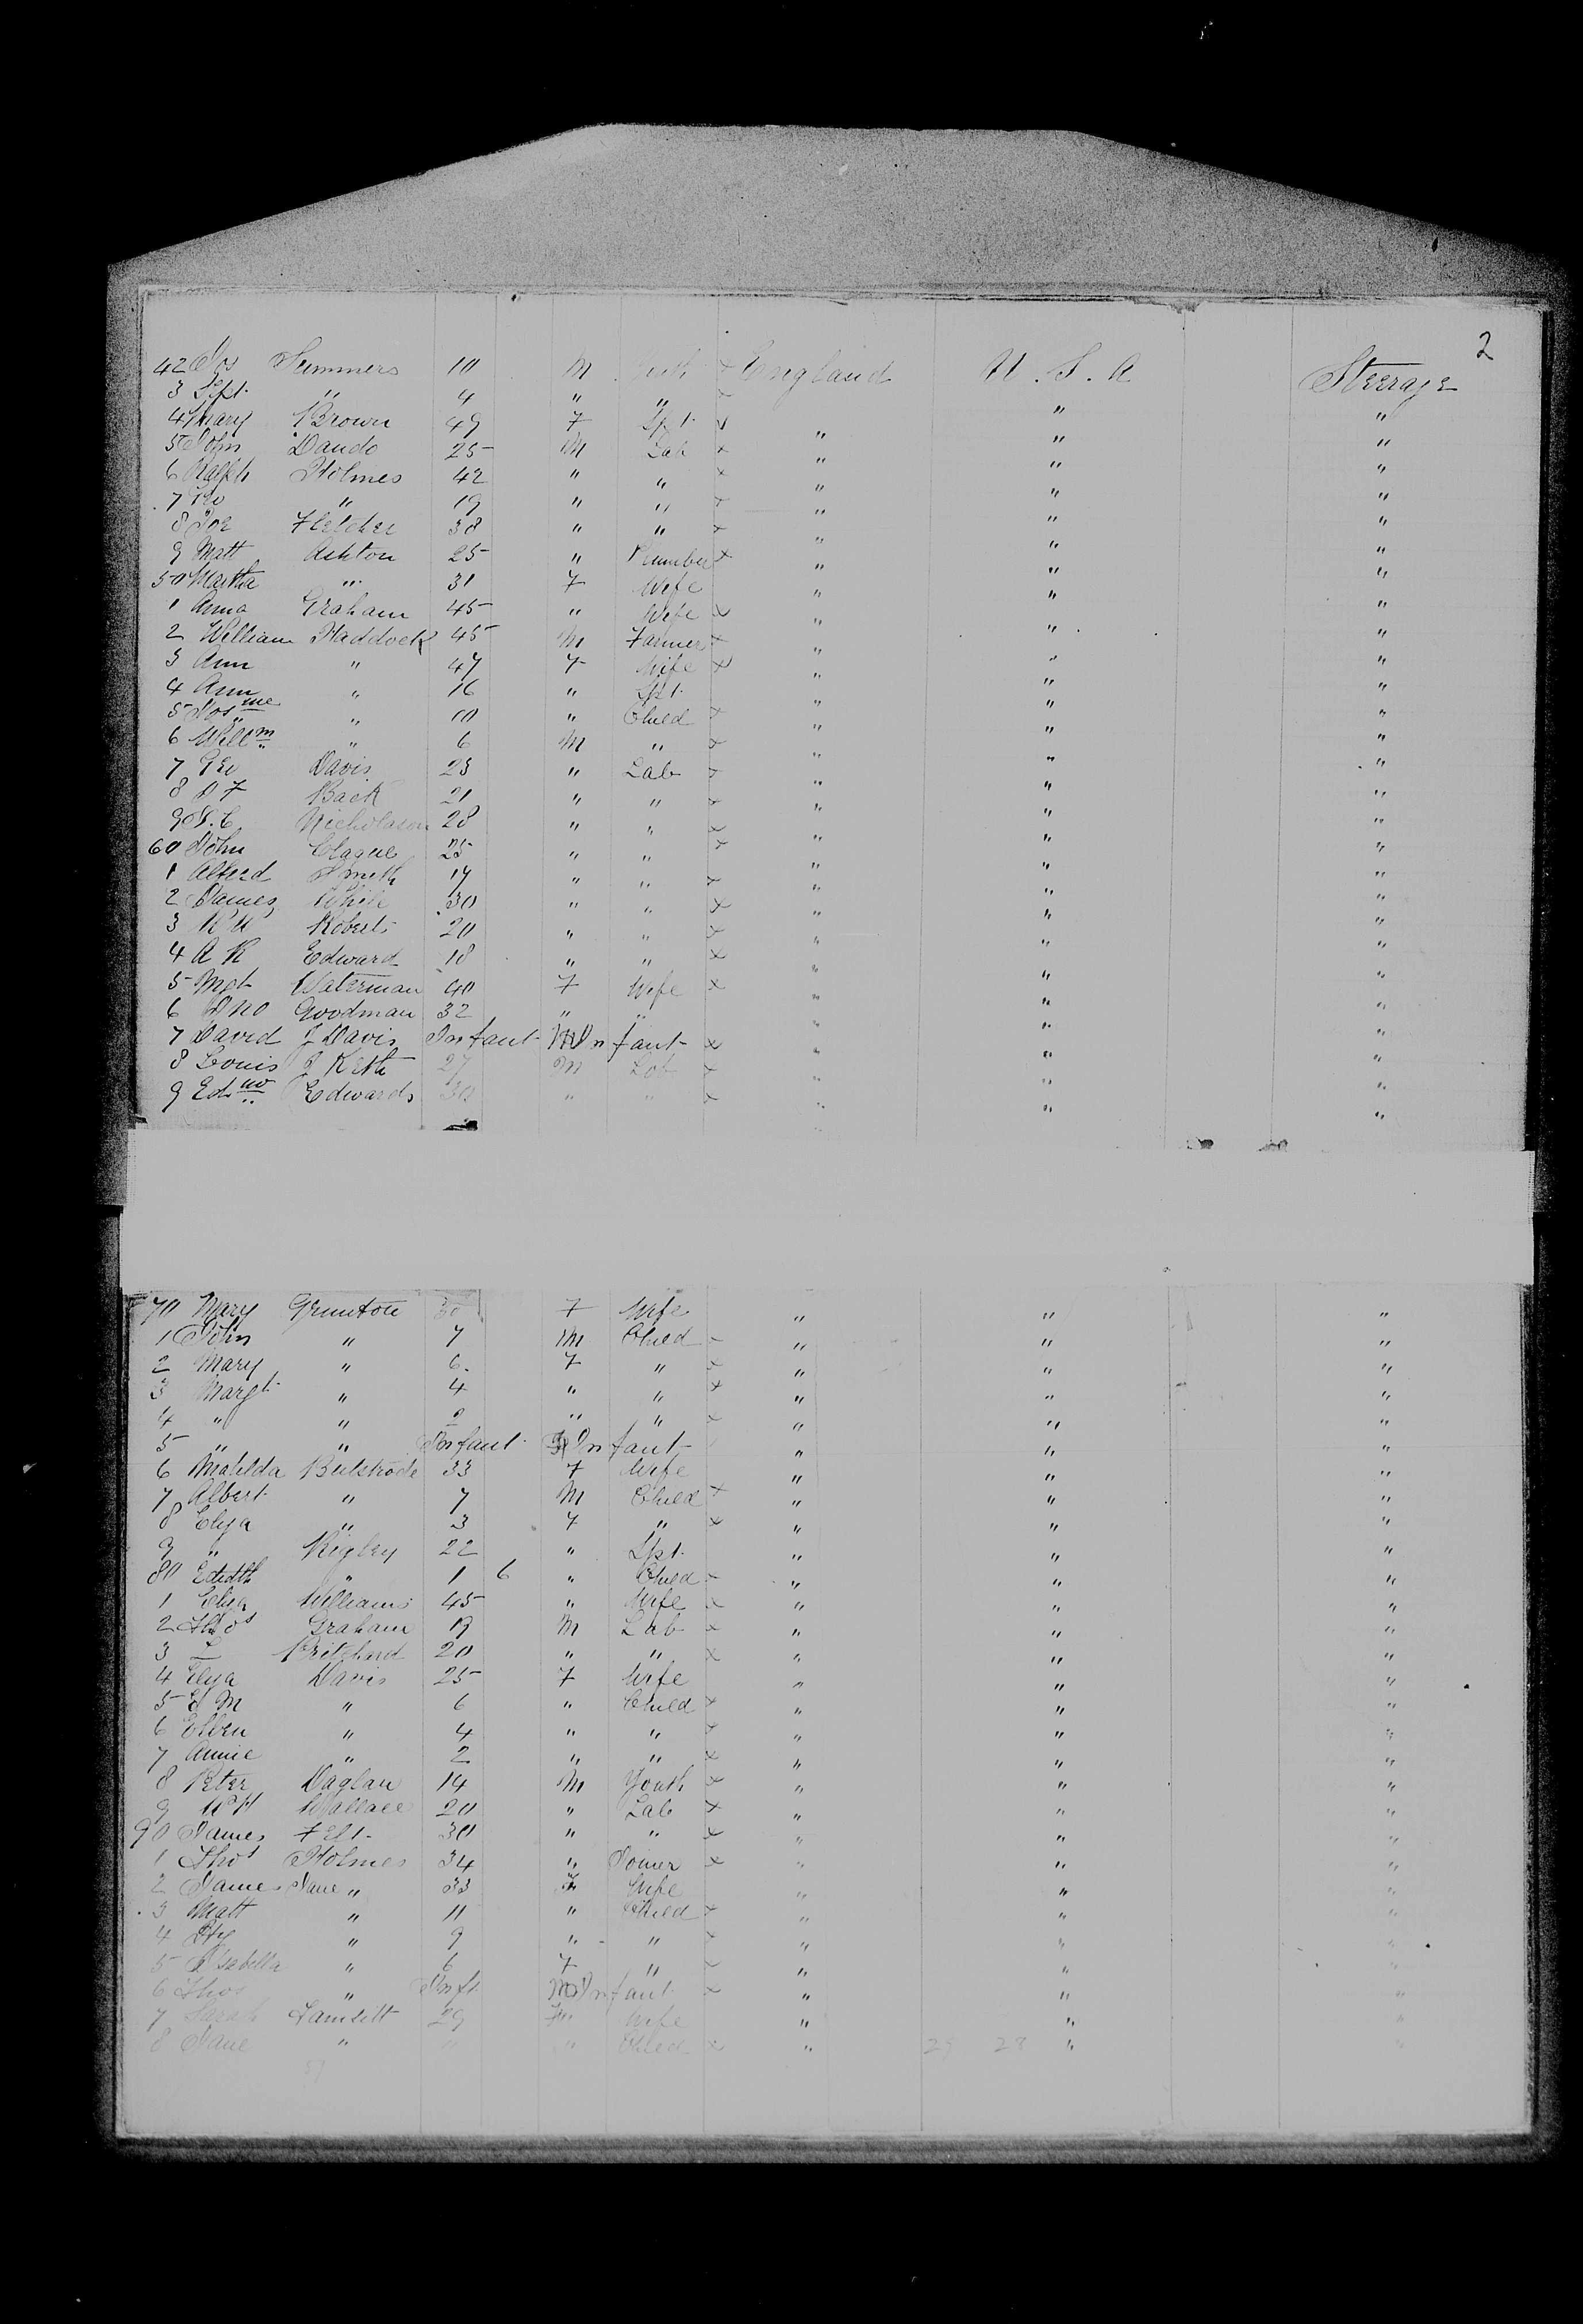 2
42 Jos Summers 10 M " England U.S.A Steerage
3 Sept. " 4 " " " "
4 Mary Brown 49 F Spt. " " "
5 John Dando 25 M Lab " " "
6 Ralph Holmes 42 " " " " "
7 Geo " 19 " " " " "
8 Joe Fletcher 38 " " " " "
9 Matt Ashton 25 " Plumber " " "
50 Martha " 31 F Wife " " "
1 Anna Graham 45 " Wife " " "
2 William Haddock 45 M Farmer " " "
3 Ann " 47 F Wife " " "
4 Ann " 16 " Spt. " " "
5 Jos.me " 10 " Child " " "
6 Willm " 6 M " " " "
7 Geo Davis 23 " Lab " " "
8 Back 21 " " " " "
9 Nicholason 28 " " " " "
60 John Clague 25 " " " " "
1 Alferd Smith 17 " " " " "
2 James While 30 " " " " "
3 Roberts 20 " " " " "
4 A R Edward 18 " " " " "
5 Mgt Waterman 40 F Wife " " "
6 Jno Goodman 32 " " " " "
7 David J Davis Infant M Infant " " "
8 Louis J Keth 27 M Lab " " "
9 Edwd Edwards 30 " " " " "
70 Mary Grunton 30 F Wife " " "
1 John " 7 M Child " " "
2 Mary " 6 F " " " "
3 Margt " 4 " " " " "
4 " " 2 " " " " "
5 " " Infant Infant " " "
6 Matilda Bulstrode 33 F Wife " " "
7 Albert " 7 M Child " " "
8 Eliza " 3 F " " " "
9 " Rigley 22 " Spt. " " "
80 Ededth " 1 6 " Child " " "
1 Eliza Williams 45 " Wife " " "
2 Thos Graham 19 M Lab " " "
3 L Pritchard 20 " " " " "
4 Eliza Davis 25 F Wife " " "
5 S M " 6 " Child " " "
6 Ellen " 4 " " " " "
7 Annie " 2 " " " " "
8 Peter Daglan 14 M Youth " " "
9 W H Wallace 20 " Lab " " "
90 James Felt 30 " " " " "
1 Thos Holmes 34 " Joiner " " "
2 James Jane " 33 F Wife " " "
3 Matt " 11 " Child " " "
4 Hy " 9 " " " " "
5 Isabella " 6 F " " " "
6 Thos " Inft M Infant " " "
7 Sarah Tamsett 29 F Wife " " "
8 Jane " " " Child " 29 28 " "